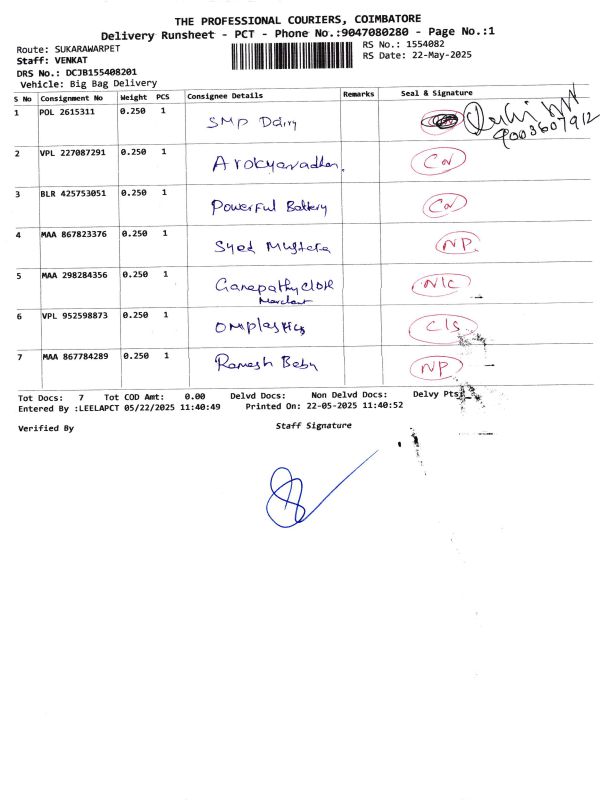 THE PROFESSIONAL COURIERS, COIMBATORE
Delivery Runsheet - PCT - Phone No.:9047080280 - Page No.:1
Route: SUKARAWARPET
RS No.: 1554082
Staff: VENKAT
RS Date: 22-May-2025
DRS No.: DCJB155408201
Vehicle: Big Bag Delivery
S No Consignment No Weight PCS Consignee Details Remarks Seal & Signature
1 POL 2615311 0.250 1 SMP Dairy 9003607912
2 VPL 227087291 0.250 1 Arokyanadhan. CN
3 BLR 425753051 0.250 1 Powerful Battery CN
4 MAA 867823376 0.250 1 Syed Mustafa NP.
5 MAA 298284356 0.250 1 Ganapathy cloth N/C
Merchant
6 VPL 952598873 0.250 1 OM plastics C/S
7 MAA 867784289 0.250 1 Ramesh Babu NP
Tot Docs: 7 Tot COD Amt: 0.00 Delvd Docs: Non Delvd Docs: Delvy Pts:
Entered By :LEELAPCT 05/22/2025 11:40:49 Printed On: 22-05-2025 11:40:52
Verified By Staff Signature